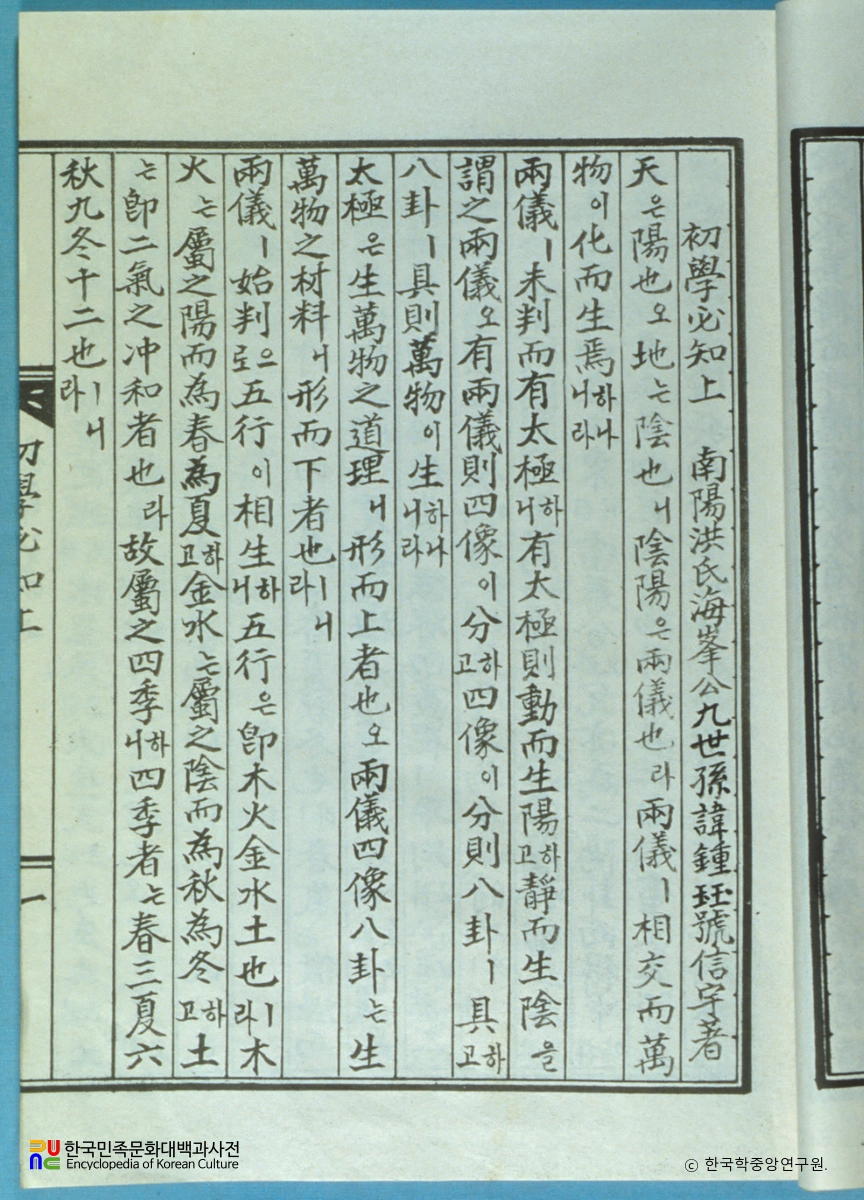 初學必知上 南陽洪氏海峯公九世孫諱鍾珏號信宇著
天은陽也오地는陰也ㅣ니陰陽은兩儀也라兩儀ㅣ相交而萬
物이化而生焉하나니라
兩儀ㅣ未判而有太極하니有太極則動而生陽하고靜而生陰을
謂之兩儀오有兩儀則四像이分하고四像이分則八卦ㅣ具하고
八卦ㅣ具則萬物이生하나니라
太極은生萬物之道理ㅣ니形而上者也오兩儀四像八卦는生
萬物之材料ㅣ니形而下者也ㅣ니라
兩儀ㅣ始判으로五行이相生하니五行은卽木火金水土也ㅣ라木
火는屬之陽而為春為夏하고金水는屬之陰而為秋為冬하고土
는卽二氣之冲和者也라故屬之四季하니四季者는春三夏六
秋九冬十二也ㅣ니라
初學必知上
一
한국민족문화대백과사전
Encyclopedia of Korean Culture
ⓒ 한국학중앙연구원.